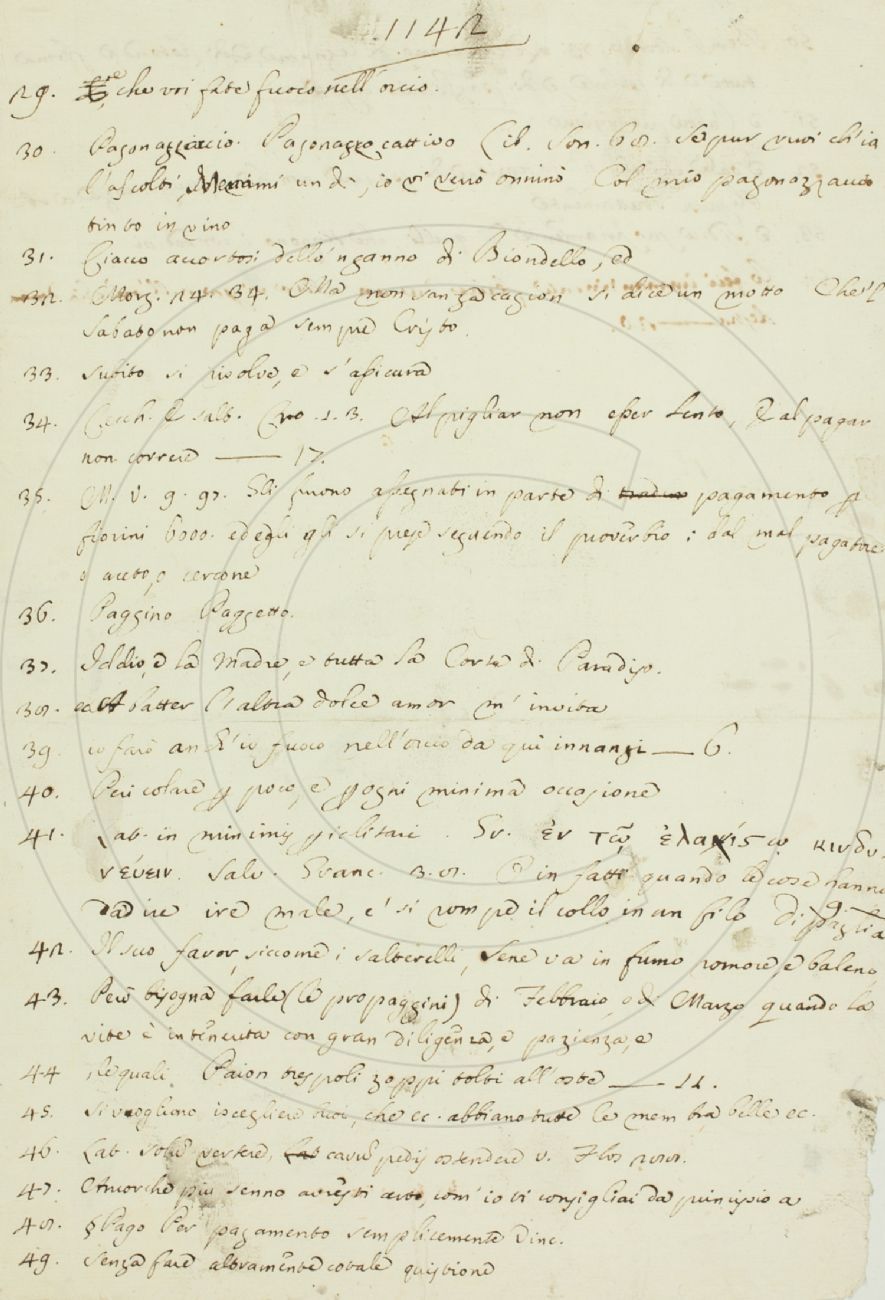 1142
29. che voi fate fuoco nell'orcio.
30. Pagonazzaccio. Pagonazzo cattivo Lib. Son. 68. Se pur vuoi ch'io
l'ascolti, Menami un dì, io vi verrò onnino Col mio pagonazzaccio
tinto in vino
31. Ciacco accortosi dello 'nganno di Biondello, ed
32. Morg. 24. 34. Ma non sanza cagion si dice un motto Che 'l
sabato non paga sempre Cristo.
33. subito si risolve, e s'assicura
34. Cecch. Esalt. Cro. 1. 3. Al pigliar non esser lento, E al pagar
non correre — 17.
35. M. V. 9. 97. Gli furono assegnati in parte di pagamento p
fiorini 6000. ed egli gli si prese seguendo il proverbio: dal mal pagatore
o aceto, o cercone
36. Paggino Paggetto.
37. Iddio, e la Madre, e tutta la Corte di Paradiso.
38. batter l'altra dolce amor m'invita
39. io farò anch'io fuoco nell'orcio da qui innanzi — 6.
40. Pericolare p poco, e p ogni minima occasione
41. Lat. in minimis piclitari. Gr. ἐν τῷ ἐλαχίστῳ κινδυ-
νεύειν. Salv. Granc. 3. 8. E in fatti quando le cose hanno
da ire ire male, e' si rompe il collo in un filo di paglia
42. Il suo favor, siccome i salterelli, Sene va in fumo romore, e baleno
43. Però bisogna farle (le propaggini) di Febbraio, o di Marzo quando la
vite è intenerita con gran diligenza, e pazienza, e
44 le quali Paion trespoli zoppi tolti all'oste — 11.
45. Si vogliono iscegliere buoi, che ec. abbiano tutte le membra belle ec.
46. Lat. solum vertere, cavum pedis ostendere v. Flos 288.
47. Ancorchè più senno avresti avuto, com' io ti consigliai da principio a
48. § Pago Per pagamento semplicemente Dinc.
49. Senza fare altramente cotale quistione